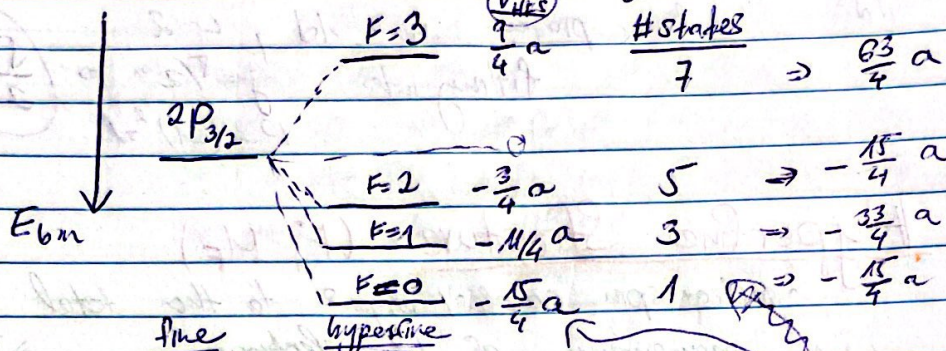 V_HFS
F=3 9/4 a # states 7 ⇒ 63/4 a
2P_3/2
0
F=2 -3/4 a 5 ⇒ -15/4 a
E_bm F=1 -11/4 a 3 ⇒ -33/4 a
F=0 -15/4 a 1 ⇒ -15/4 a
fine hyperfine